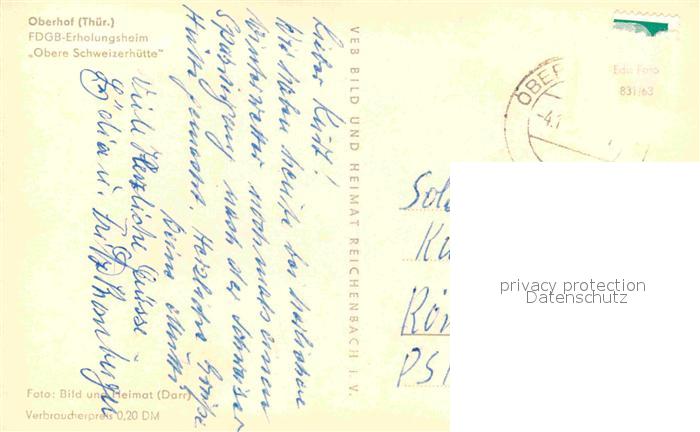 Oberhof (Thür.)
FDGB-Erholungsheim
„Obere Schweizerhütte"
Lieber Kurt!
Wir haben heute bei herrlichem
Winterwetter nochmals einen
Spaziergang nach der Schweizer
Hütte gemacht. Herzliche Grüße
Deine Mutter
Viele Herzliche Grüsse
Lydia u. Fritz
VEB BILD UND HEIMAT REICHENBACH i. V.
Foto: Bild und Heimat (Darr)
Verbraucherpreis 0,20 DM
Edu Foto
831/63
OBER
-4.1
Sol
Ku
Rön
PSF
privacy protection
Datenschutz